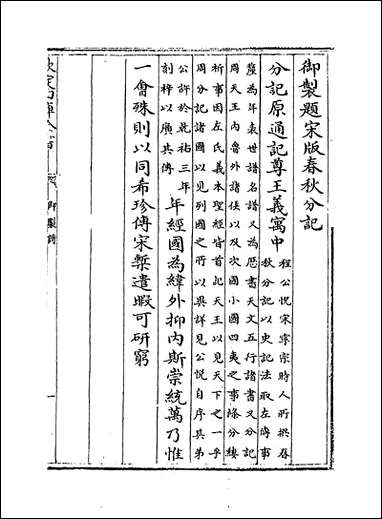 御製題宋版春秋分記
分記原通記尊王義寓中
程公悅宋寧宗時人所撰春
秋分記以史記法取左傳事
釐為年表世譜名譜又為歷書天文五行諸書又分記
周天王內魯外諸侯以及次國小國四夷之事條分縷
析事因左氏義本聖經皆首紀天王以見天下之一乎
周分記諸國以見列國之所以異詳見公悅自序其弟
公許於乾祐三年
刻梓以廣其傳
年經國為緯外抑內斯崇統萬乃惟
一會殊則以同希珍傳宋槧遺暇可研窮
欽定四庫全書
御製詩
一